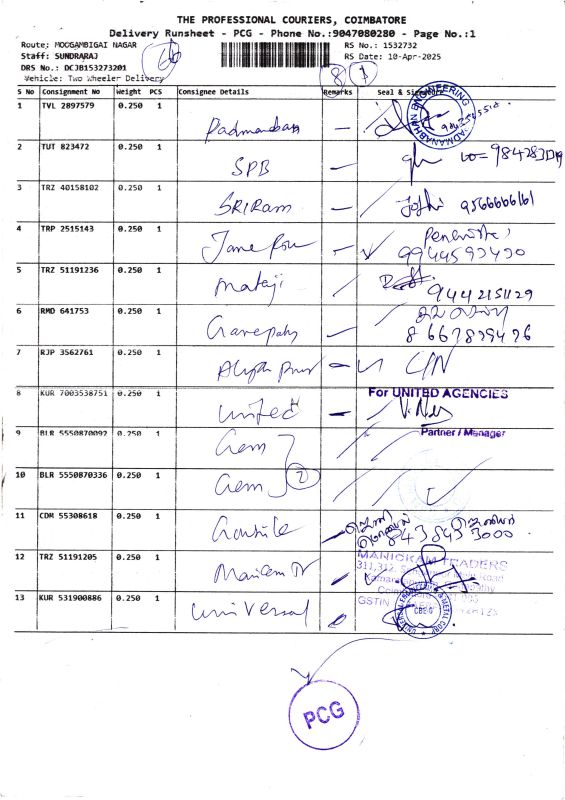 THE PROFESSIONAL COURIERS, COIMBATORE
Delivery Runsheet - PCG - Phone No.:9047080280 - Page No.:1
Route: MOOGAMBIGAI NAGAR
Staff: SUNDRARAJ
DRS No.: DCJB153273201
Vehicle: Two Wheeler Delivery
RS No.: 1532732
RS Date: 10-Apr-2025
8 1
S No Consignment No Weight PCS Consignee Details Remarks Seal &
1 TVL 2897579 0.250 1 Padmanaban
2 TUT 823472 0.250 1 SPB
3 TRZ 40158102 0.250 1 SRIRam 9566666161
4 TRP 2515143 0.250 1 9944593430
5 TRZ 51191236 0.250 1 mataji 9442151129
6 RMD 641753 0.250 1 Ganepathy
7 RJP 3562761 0.250 1 C/N
8 KUR 7003538751 0.250 1 United For UNITED AGENCIES
Partner / Manager
9 BLR 5550870092 0.250 1 Gem
10 BLR 5550870336 0.250 1 Gem 2
11 CDM 55308618 0.250 1 8438453000
12 TRZ 51191205 0.250 1 MANICKAM TRADERS
GSTIN
13 KUR 531900886 0.250 1 universal
PCG